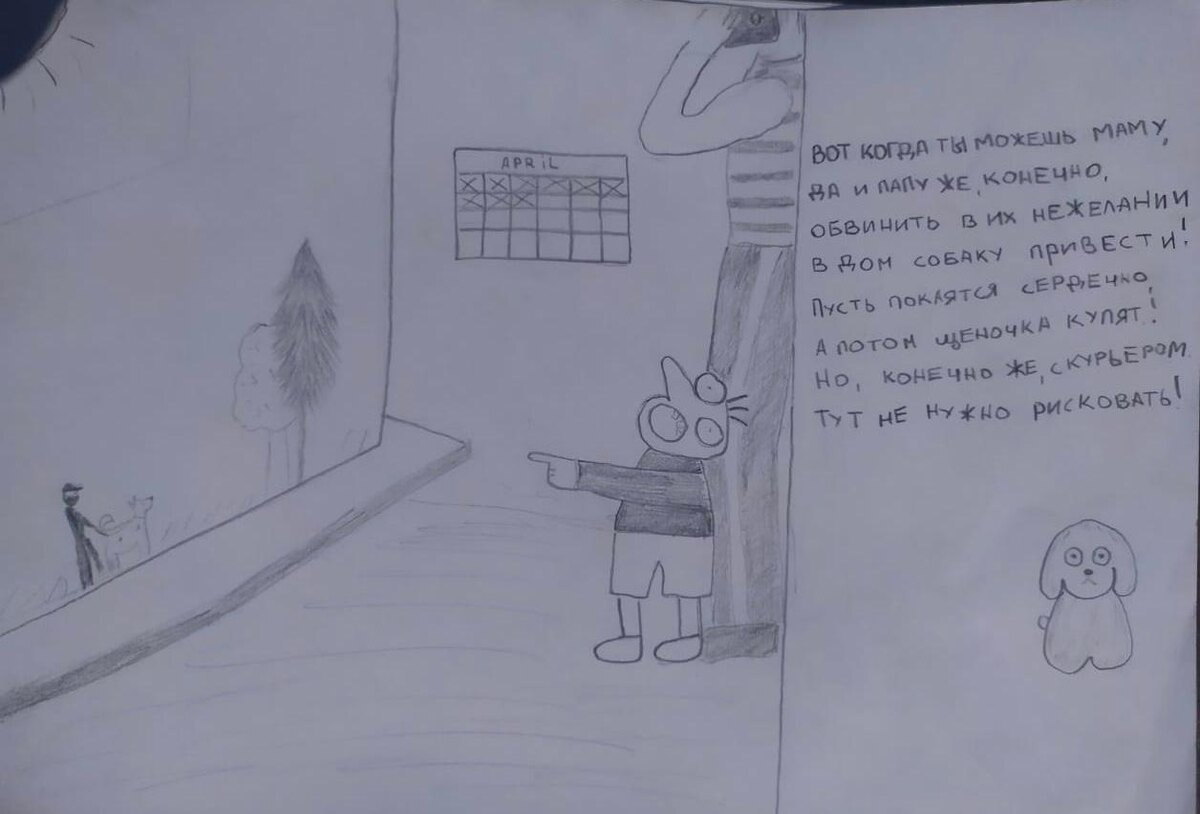 APRIL
ВОТ КОГДА ТЫ МОЖЕШЬ МАМУ,
ДА И ПАПУ ЖЕ, КОНЕЧНО,
ОБВИНИТЬ В ИХ НЕЖЕЛАНИИ
В ДОМ СОБАКУ ПРИВЕСТИ!
ПУСТЬ ПОКАЯТСЯ СЕРДЕЧНО,
А ПОТОМ ЩЕНОЧКА КУПЯТ!
НО, КОНЕЧНО ЖЕ, С КУРЬЕРОМ
ТУТ НЕ НУЖНО РИСКОВАТЬ!